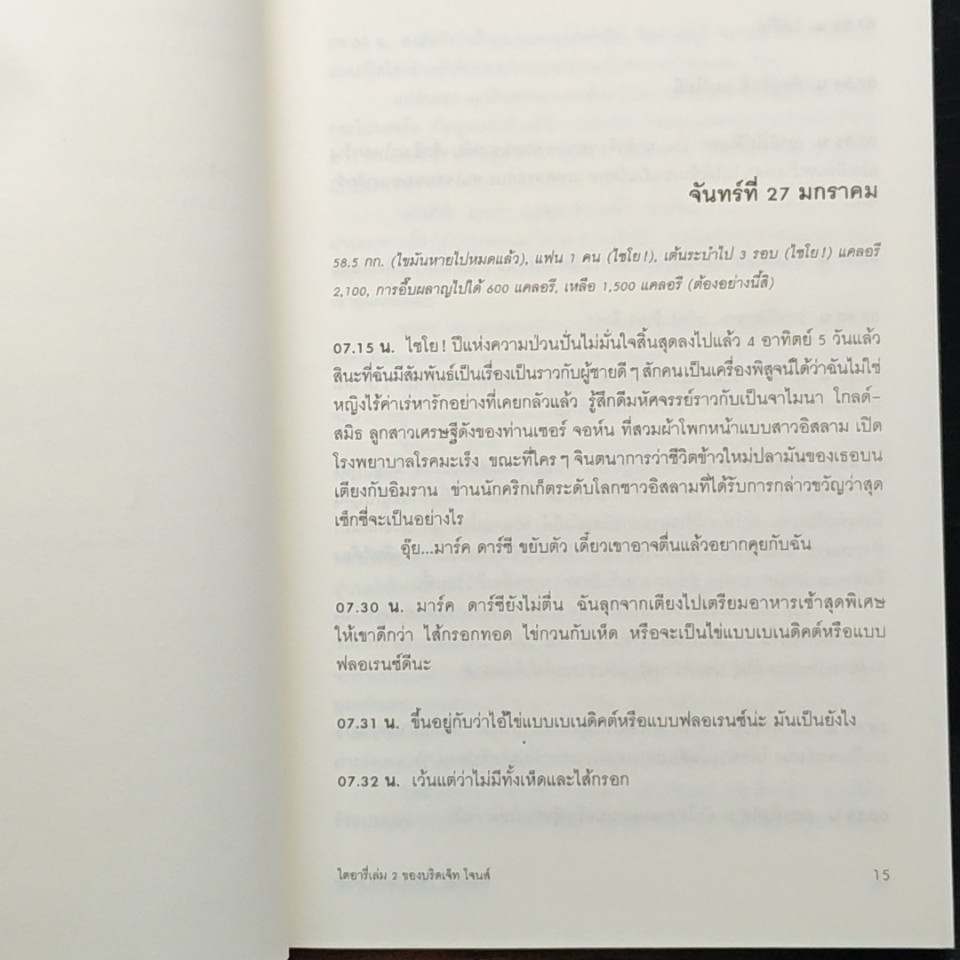 จันทร์ที่ 27 มกราคม
58.5 กก. (ไขมันหายไปหมดแล้ว), แฟน 1 คน (ไชโย!), เต้นระบำไป 3 รอบ (ไชโย!) แคลอรี
2,100, การอึ๊บผลาญไปได้ 600 แคลอรี, เหลือ 1,500 แคลอรี (ต้องอย่างนี้สิ)
07.15 น. ไชโย! ปีแห่งความป่วนปั่นไม่มั่นใจสิ้นสุดลงไปแล้ว 4 อาทิตย์ 5 วันแล้ว
สินะที่ฉันมีสัมพันธ์เป็นเรื่องเป็นราวกับผู้ชายดีๆ สักคนเป็นเครื่องพิสูจน์ได้ว่าฉันไม่ใช่
หญิงไร้ค่าเร่หารักอย่างที่เคยกลัวแล้ว รู้สึกดีมหัศจรรย์ราวกับเป็นจาไมนา โกลด์-
สมิธ ลูกสาวเศรษฐีดังของท่านเซอร์ จอห์น ที่สวมผ้าโพกหน้าแบบสาวอิสลาม เปิด
โรงพยาบาลโรคมะเร็ง ขณะที่ใครๆ จินตนาการว่าชีวิตข้าวใหม่ปลามันของเธอบน
เตียงกับอิมราน ข่านนักคริกเก็ตระดับโลกชาวอิสลามที่ได้รับการกล่าวขวัญว่าสุด
เซ็กซี่จะเป็นอย่างไร
อุ๊ย...มาร์ค ดาร์ซี ขยับตัว เดี๋ยวเขาอาจตื่นแล้วอยากคุยกับฉัน
07.30 น. มาร์ค ดาร์ซียังไม่ตื่น ฉันลุกจากเตียงไปเตรียมอาหารเช้าสุดพิเศษ
ให้เขาดีกว่า ไส้กรอกทอด ไข่กวนกับเห็ด หรือจะเป็นไข่แบบเบเนดิคต์หรือแบบ
ฟลอเรนซ์ดีนะ
07.31 น. ขึ้นอยู่กับว่าไอ้ไข่แบบเบเนดิคต์หรือแบบฟลอเรนซ์น่ะ มันเป็นยังไง
07.32 น. เว้นแต่ว่าไม่มีทั้งเห็ดและไส้กรอก
ไดอารี่เล่ม 2 ของบริดเจ็ท โจนส์ 15